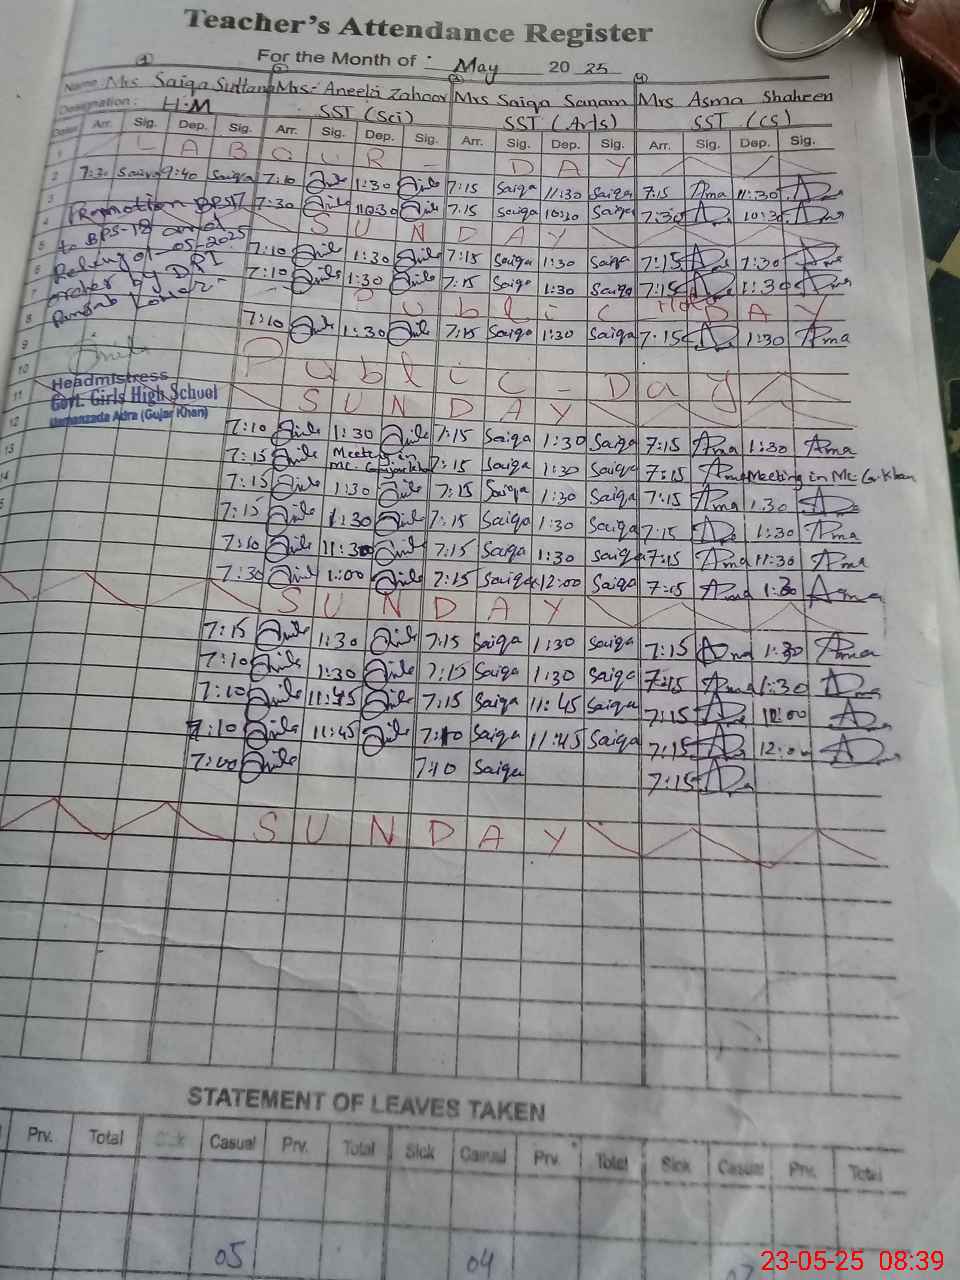 Teacher's Attendance Register
For the Month of : May 2025
1 2 3 4
Name Mrs Saiqa Sultana Mrs- Aneela Zahoor Mrs Saiqa Sanam Mrs Asma Shaheen
Designation : H.M SST (Sci) SST (Arts) SST (CS)
Dates Arr. Sig. Dep. Sig. Arr. Sig. Dep. Sig. Arr. Sig. Dep. Sig. Arr. Sig. Dep. Sig.
1 LABOUR - DAY
2 7:30 Saiqa 9:40 Saiqa 7:10 1:30 7:15 Saiqa 11:30 Saiqa 7:15 Asma 11:30
3 Promotion BPS17 7:30 10:30 7:15 Saiqa 10:30 Saiqa 7:30 10:30
4 to BPS-18 and SUNDAY
5 05-2025 7:10 1:30 7:15 Saiqa 1:30 Saiqa 7:15 7:30
6 order by DPI 7:10 1:30 7:15 Saiqa 1:30 Saiqa 7:15 1:30
7 Punjab Lahore Public Holi DAY
8 7:10 1:30 7:15 Saiqa 1:30 Saiqa 7:15 1:30 Asma
9 Public Day
10 Headmistress
11 Govt. Girls High School SUNDAY
Usmanzada Adra (Gujar Khan)
12 7:10 1:30 7:15 Saiqa 1:30 Saiqa 7:15 Asma 1:30 Asma
13 7:15 Meeting in MC. Gujarkhan 7:15 Saiqa 1:30 Saiqa 7:15 Asma Meeting in MC G.Khan
14 7:15 1:30 7:15 Saiqa 1:30 Saiqa 7:15 Asma 1:30
7:15 1:30 7:15 Saiqa 1:30 Saiqa 7:15 1:30 Asma
7:10 11:30 7:15 Saiqa 1:30 Saiqa 7:15 Asma 11:30 Asma
7:30 1:00 7:15 Saiqa 12:00 Saiqa 7:15 Asma 1:30 Asma
SUNDAY
7:15 1:30 7:15 Saiqa 1:30 Saiqa 7:15 1:30 Asma
7:10 1:30 7:15 Saiqa 1:30 Saiqa 7:15 Asma 1:30
7:10 11:45 7:15 Saiqa 11:45 Saiqa 7:15 12:00
7:10 11:45 7:10 Saiqa 11:45 Saiqa 7:15 12:00
7:00 7:10 Saiqa 7:15
SUNDAY
STATEMENT OF LEAVES TAKEN
Prv. Total Sick Casual Prv. Total Sick Casual Prv. Total Sick Casual Prv. Total
05 04
23-05-25 08:39